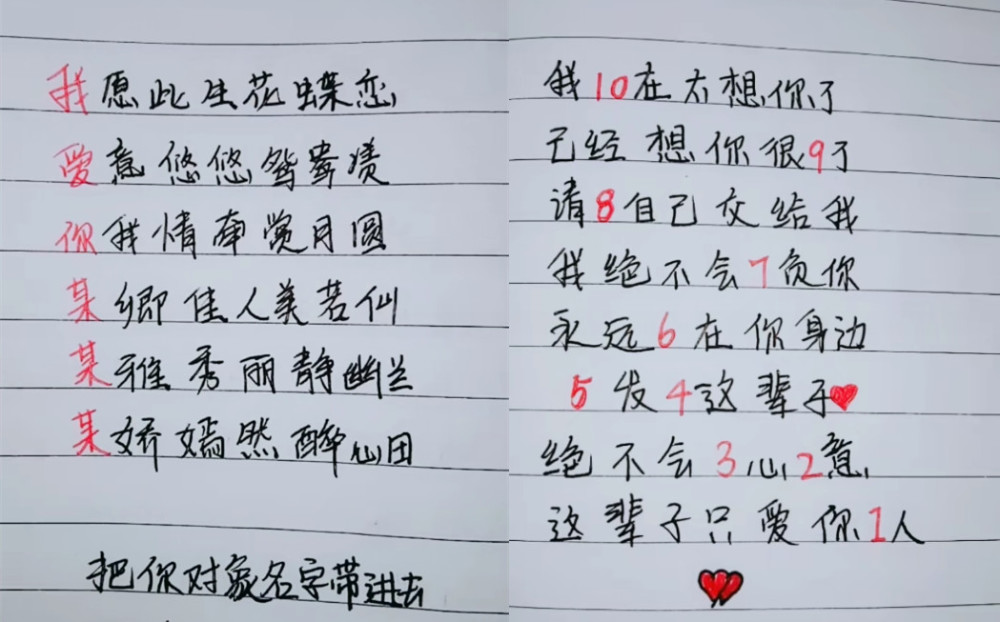 我愿此生花蝶恋
爱意悠悠鸳鸯
你我情牵赏月圆
某乡佳人美若仙
某雅秀丽静幽兰
某娇嫣然醉心田
把你对象名字带进去
我10在太想你了
已经想你很9了
请8自己交给我
我绝不会7负你
永远6在你身边
5发4这辈子
绝不会3心2意
这辈子只爱你1人